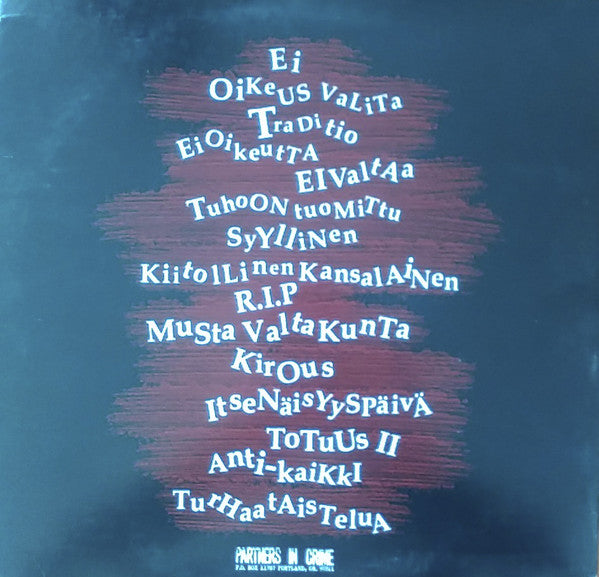 Ei
OiKeUS VaLiTa
TraDitio
EiOikeutTA
EIValtAa
TuhoON tuoMiTtu
SyYlliNen
KiitolLinen KansalAiNen
R.I.P
MuSta ValtaKunTa
KirOus
ItseNäisYySPäivÄ
ToTuUs II
Anti-kaiKkI
TurHaatAisTeluA
PARTNERS IN CRIME
P.O. BOX PORTLAND, OR.